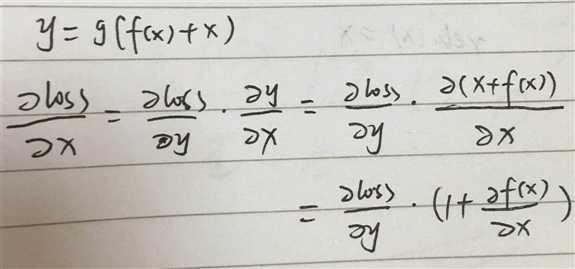 y = g(f(x)+x)
∂loss/∂x = ∂loss/∂y · ∂y/∂x = ∂loss/∂y · ∂(x+f(x))/∂x
= ∂loss/∂y · (1+ ∂f(x)/∂x)